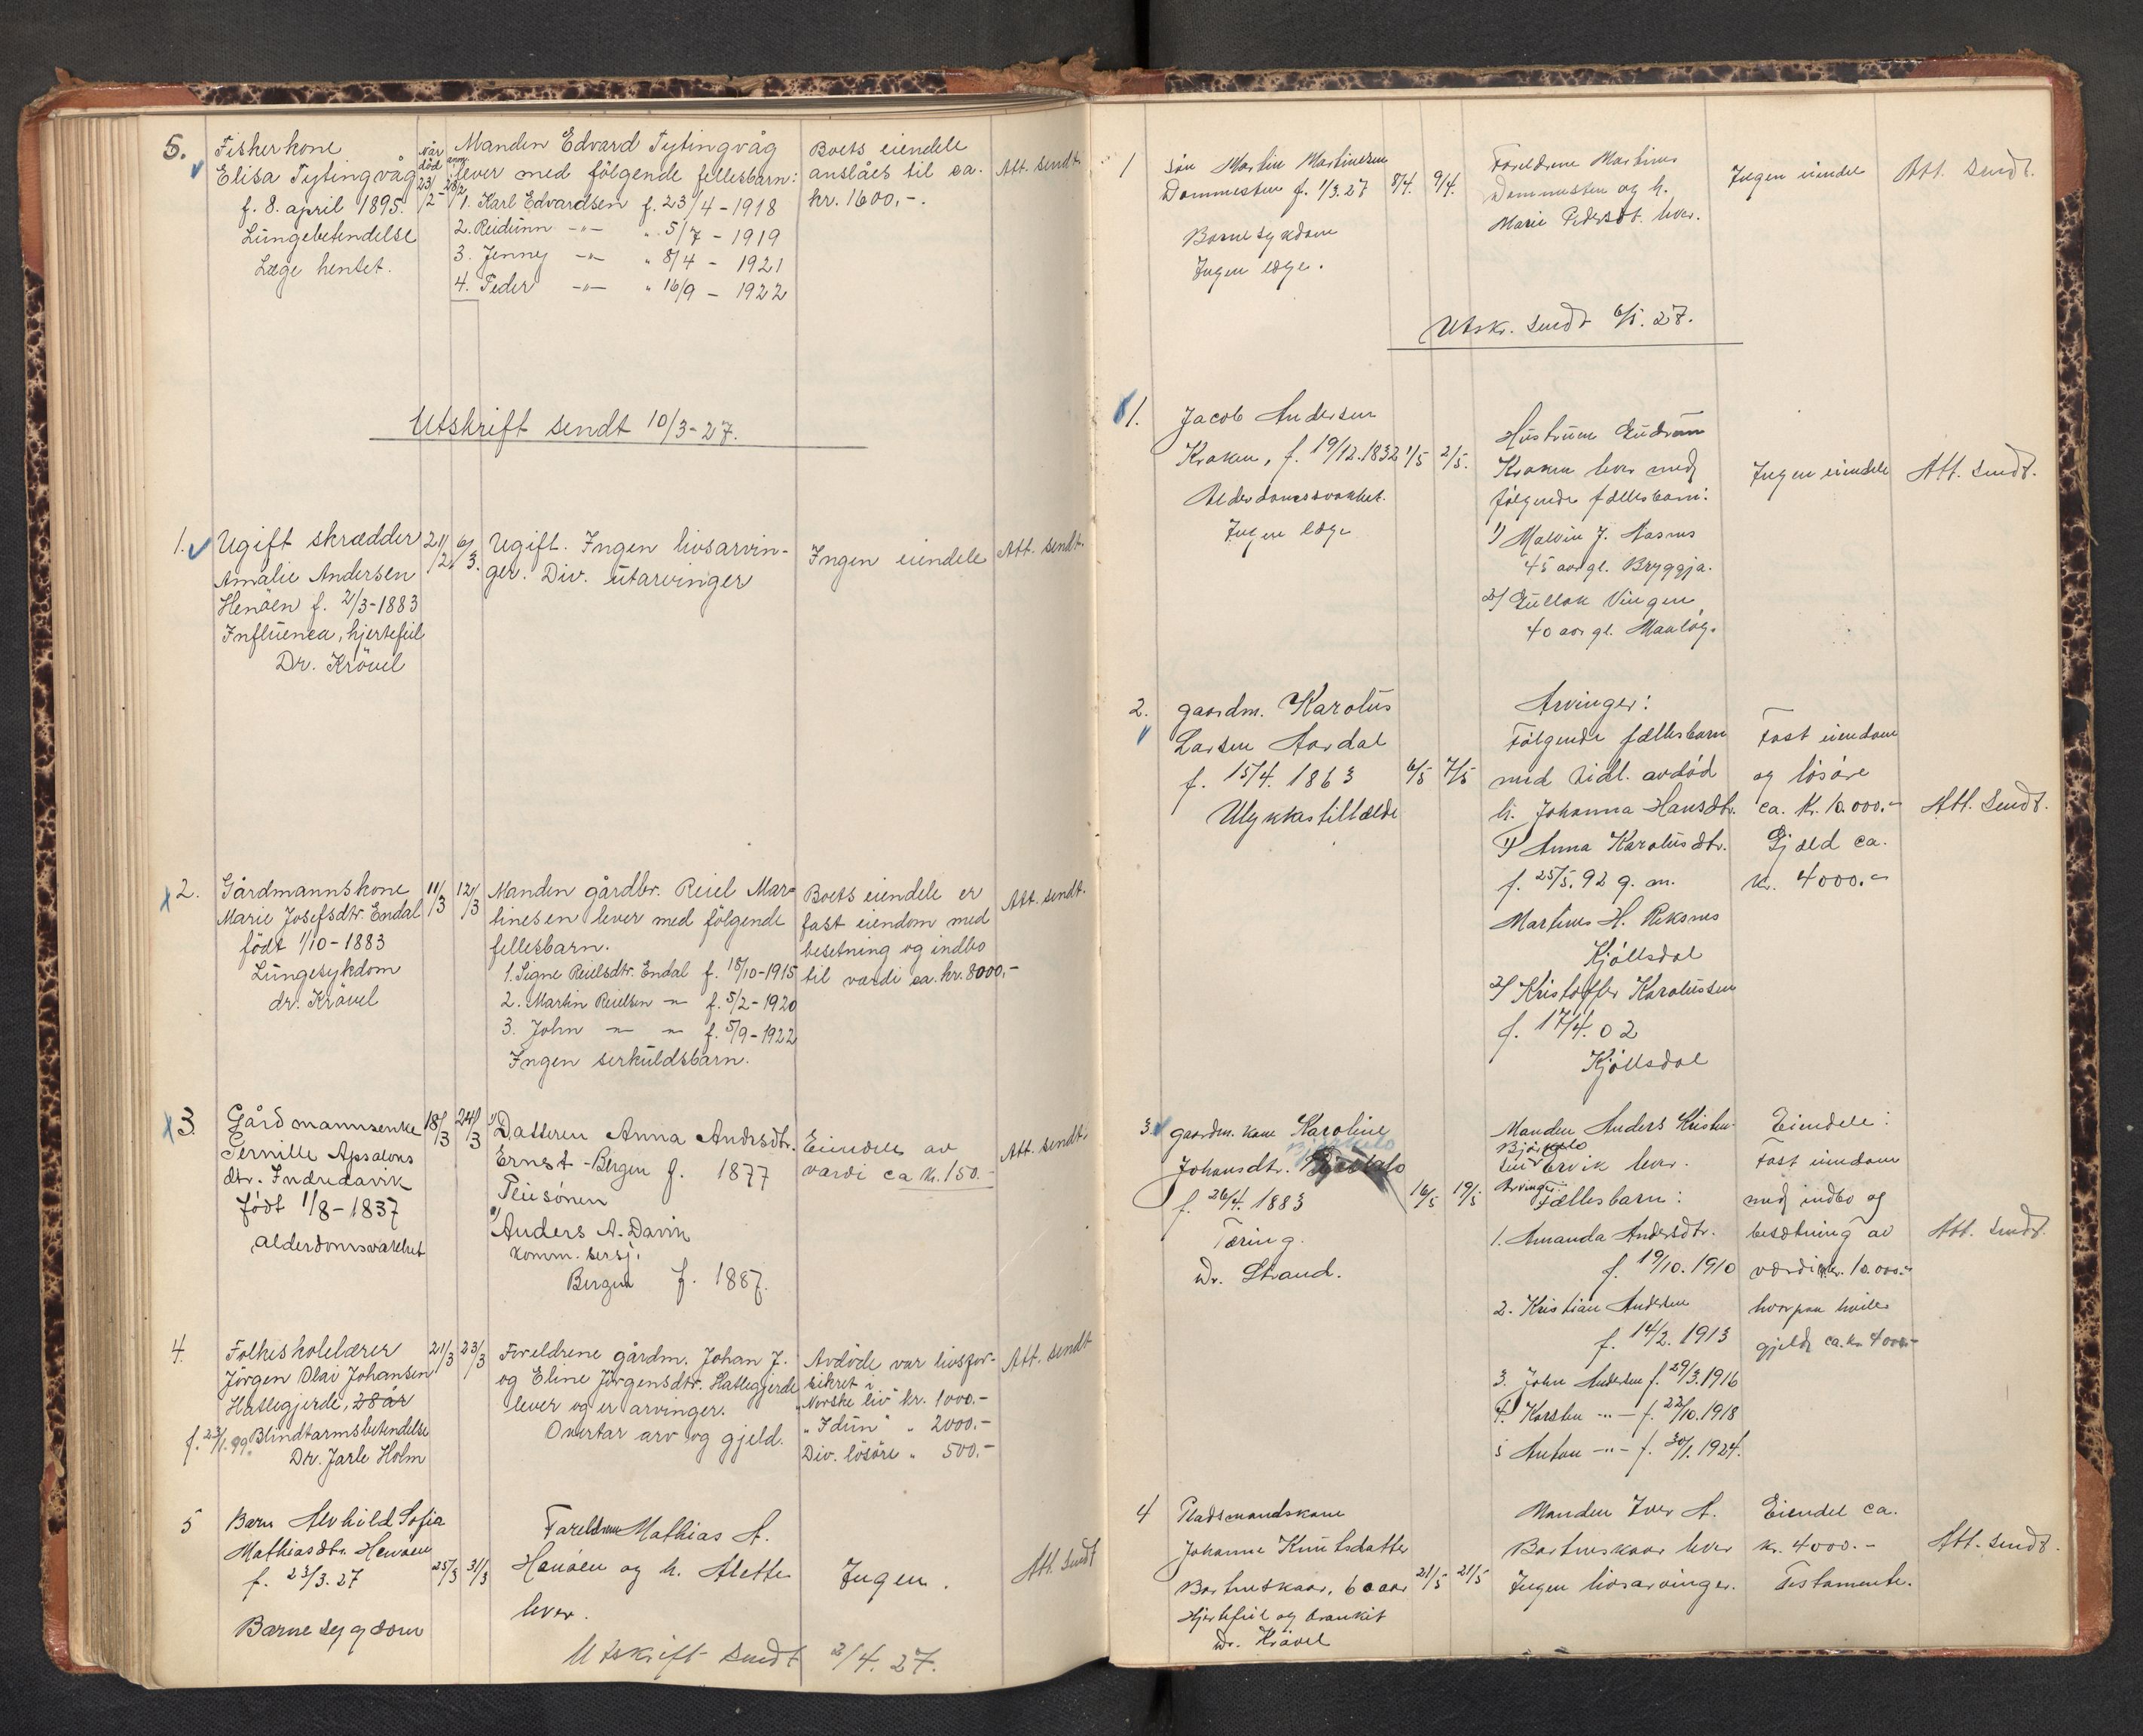 5.
Fiskerkone
Elisa Tytingvåg
f. 8. april 1895.
Lungebetendelse
Læge hentet.
Når død
anm.
23/2 - 28/2
Manden Edvard Tytingvåg
lever med følgende fellesbarn:
1. Karl Edvardsen f. 23/4 - 1918
2. Reidunn -"- " 5/7 - 1919
3. Jenny -"- " 8/4 - 1921
4. Peder -"- " 16/9 - 1922
Boets eiendele
anslåes til ca.
kr. 1600,-.
Att. sendt.
Utskrift sendt 10/3-27.
1.
Ugift skrædder
Amalie Andersen
Henøen f. 2/3-1883
Influenca, hjertefeil
Dr. Krövel
21/2 6/3.
Ugift. Ingen livsarvin-
ger. Div. utarvinger
Ingen eiendele
Att. sendt.
2.
Gårdmannskone
Marie Josefsdtr. Endal
født 1/10-1883
Lungesykdom
dr. Krövel
11/3 12/3
Manden gårdbr. Reiel Mar-
tinesen lever med følgende
fellesbarn.
1. Signe Reielsdtr. Endal f. 18/10-1915
2. Martin Reielsen -"- f. 5/2-1920
3. John -"- -"- f. 5/9-1922
Ingen serkuldsbarn.
Boets eiendele er
fast eiendom med
besetning og indbo
til værdi ca. kr. 8000,-
Att. sendt.
3.
Gårdmannsenke
Pernille Apsalons
dtr. Indredavik
født 1/8-1837
Alderdomsvakhet
18/3 24/3
1) Datteren Anna Andrsdtr.
Ernest-Bergen f. 1877
Pleiesønen
2) Anders A. Davik
komm. bersj.
Bergen f. 1887.
Eiendele av
værdi ca kr. 150.-
Att. sendt.
4.
Folkeskolelærer
Jörgen Olai Johansen
Hatlegjerde, 28 år
f. 23/1.99. Blindtarmsbetendelse
Dr. Jarle Holm
21/3 23/3
Foreldrene gårdm. Johan J.
og Eline Jörgensdtr. Hatlegjerde
lever og er arvinger.
Overtar arv og gjeld.
Avdöde var livsfor-
sikret i
"Norske liv" kr. 1000.-
"Idun" " 2000.-
Div. lösöre " 500.-
Att. sendt
5
Barn Alvhild Sofie
Mathiasdtr. Henøen
f. 23/3.27
Barnesygdom
25/3 31/3
Foreldrene Mathias A.
Henøen og h. Alette
lever.
Ingen.
Att. sendt
Utskrift sendt 2/4.27.
1
Søn Martin Martinesen
Dommesten f. 1/3.27
Barnesykdom
Ingen læge.
8/4. 9/4.
Foreldrene Martinus
Dommesten og h.
Marie Pedersdt. lever.
Ingen eiendele
Att. sendt.
Utskr. sendt 6/5.27.
1.
Jacob Andersen
Kraken, f. 19/12.1832
Alderdomssvakhet.
Ingen læge
1/5 2/5.
Hustruen Gudrun
Kraken lever med
følgende fællesbarn:
1) Malvin J. Aasnes
45 aar gl. Bryggja.
2) Gullak Vingen
40 aar gl. Maaløy.
Ingen eiendele
Att. sendt.
2.
gaardm. Karolus
Larsen Aardal
f. 15/4. 1863
Ulykkestilfælde
6/5 7/5
Arvinger:
Følgende fællesbarn
med tidl. avdød
h. Johanna Hansdtr.
1) Anna Karolusdtr.
f. 25/5.92 g. m.
Martinus H. Reksnes
Kjøllsdal
2) Kristoffer Karolussen
f. 17/4.02
Kjøllsdal
Fast eiendom
og løsøre
ca. kr. 10.000.-
Gjæld ca.
kr. 4000.-
Att. sendt.
3.
gaardm. kone Karoline
Johansdtr.
f. 26/4. 1883
Tæring.
Dr. Strand.
16/5 19/5
Manden Anders Kristen-
sen Ervik lever.
Arvinger:
Fællesbarn:
1. Amanda Andersdtr.
f. 19/10.1910
2. Kristian Andersen
f. 14/2. 1913
3. John Andersen f. 29/3.1916
4. Karsten -"- f. 22/10.1918
5 Anton -"- f. 30/1.1924.
Eiendele:
Fast eiendom
med indbo og
besætning av
værdi kr. 10.000.-
hvorpaa hviler
gjeld ca. kr. 4000.-
Att. sendt.
4
Pladsmandskone
Johanne Knutsdatter
Bortneskaar, 60 aar
Hjertefeil og bronkit
Dr. Krövel
21/5 21/5
Manden Iver A.
Bortneskaar lever
Ingen livsarvinger.
Eiendel ca.
kr. 4000.-
Testamente.
Att. sendt.